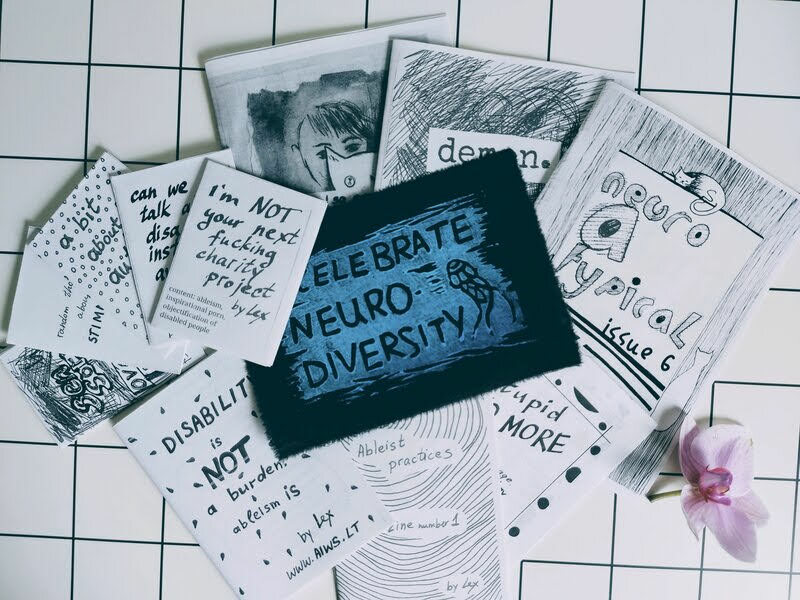 demon.
neuro
a
typical
issue 6
a bit
about
random tho
about
STIMI
can we
talk a
disa
inst
a
I'm NOT
your next
fucking
charity
project
by Lex
content: ableism,
inspirational porn,
objectification of
disabled people
CELEBRATE
NEURO-
DIVERSITY
DISABILIT
is
NOT
a burden.
ableism is
by Lex
WWW.AIWS.LT
Ableist
practices
zine number 1
by Lex
stupid
O MORE